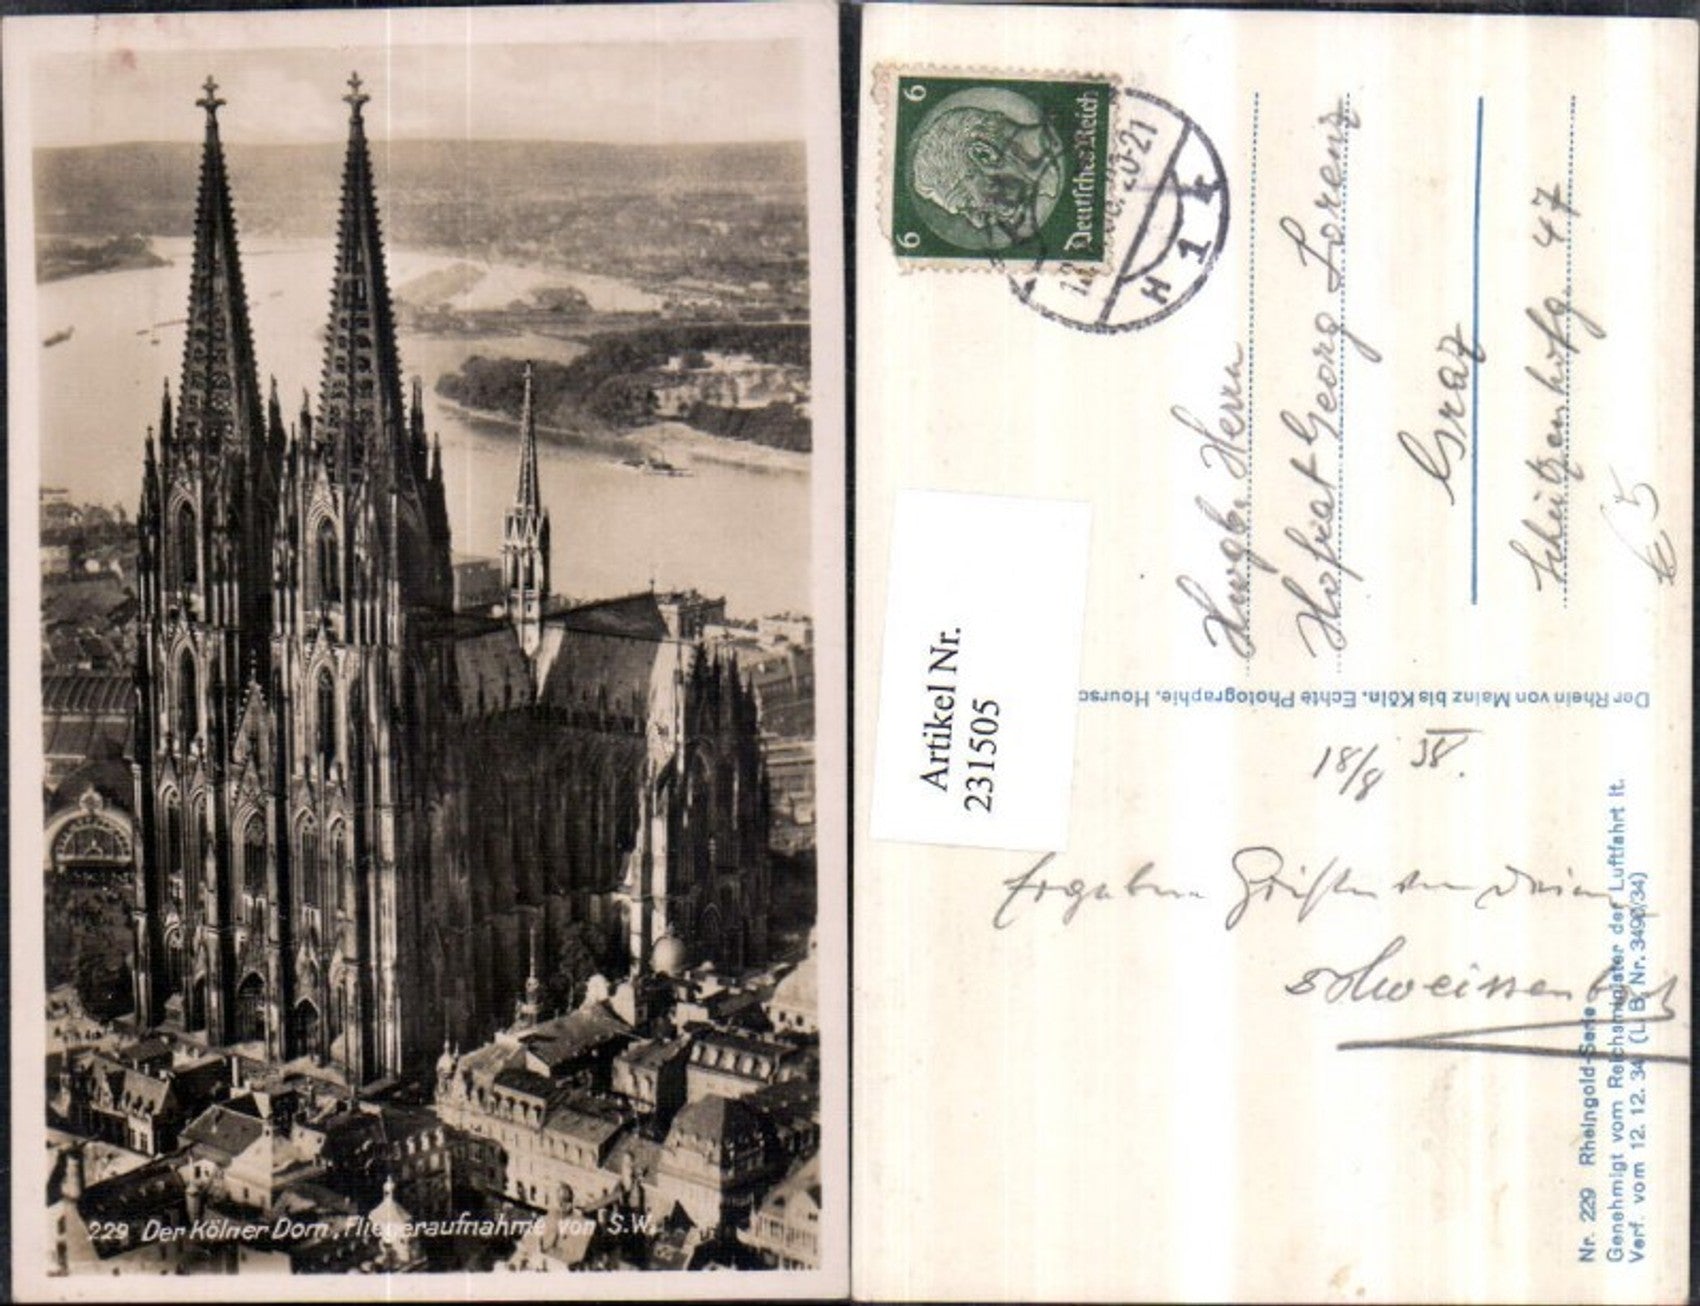 229 Der Kölner Dom, Fliegeraufnahme von S.W.
6
6
Deutsches Reich
20-21
H 1 k
Herrn
Hofrat Georg Lorenz
Graz
47
€ 5
Artikel Nr.
231505
Der Rhein von Mainz bis Köln. Echte Photographie. Hoursc
18/8 38.
Nr. 229 Rheingold-Serie
Genehmigt vom Reichsminister der Luftfahrt lt.
Verf. vom 12. 12. 34 (L. B. Nr. 3490/34)